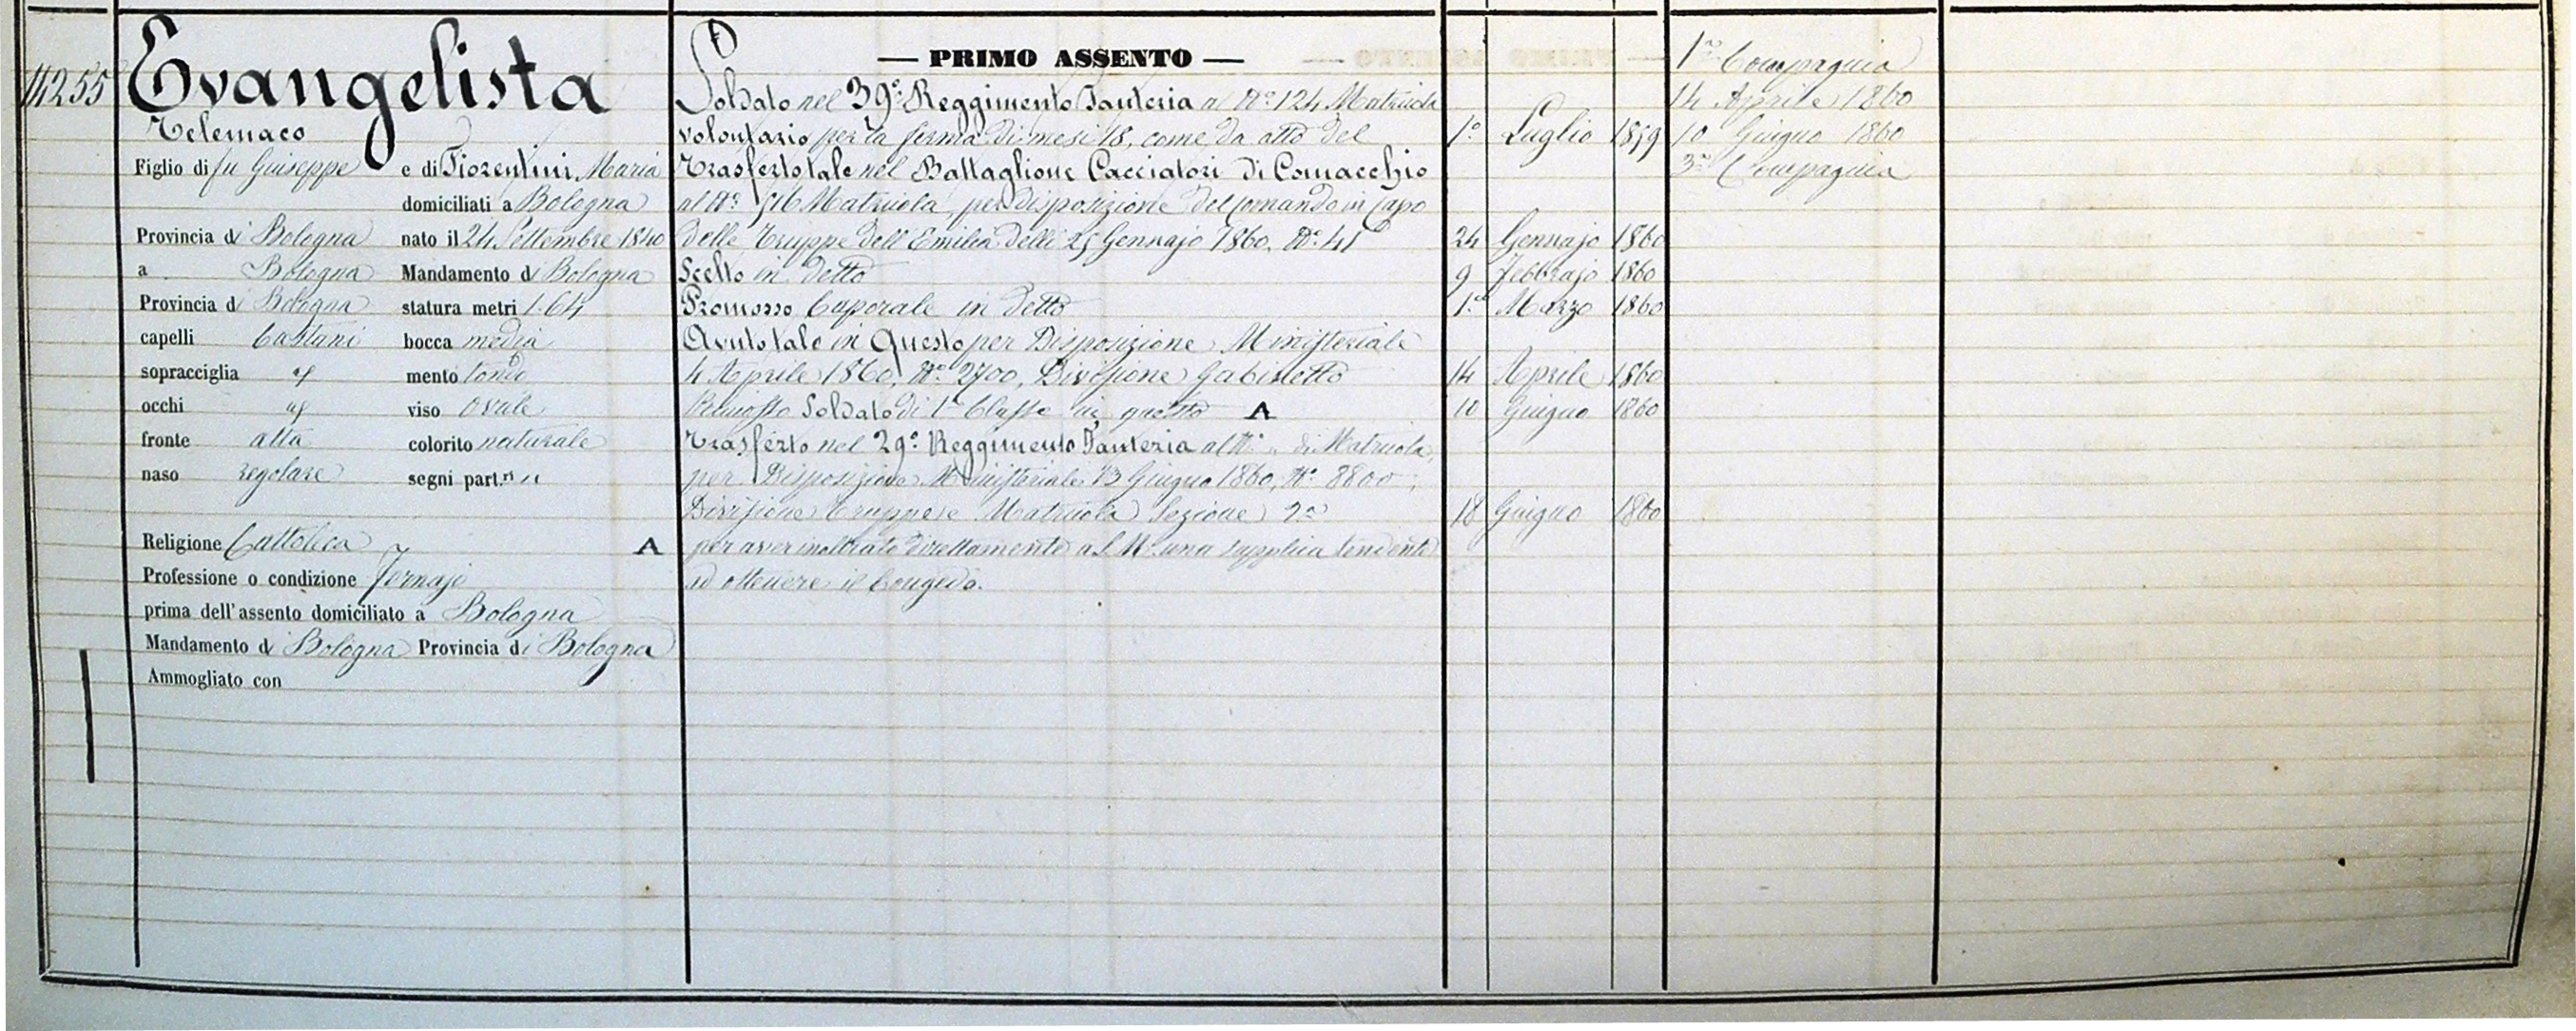 4255
Evangelista
Telemaco
Figlio di fu Giuseppe e di Fiorentini Maria
domiciliati a Bologna
Provincia di Bologna nato il 24 Settembre 1840
a Bologna Mandamento di Bologna
Provincia di Bologna statura metri 1.64
capelli Castani bocca media
sopracciglia id mento tondo
occhi id viso Ovale
fronte alta colorito naturale
naso regolare segni part.ri "
Religione Cattolica
Professione o condizione Fornajo
prima dell'assento domiciliato a Bologna
Mandamento di Bologna Provincia di Bologna
Ammogliato con
— PRIMO ASSENTO —
Soldato nel 39º Reggimento Fanteria al Nº 124 Matricola
volontario per la ferma di mesi 18, come da atto del 1º Luglio 1859
Trasferto tale nel Battaglione Cacciatori di Comacchio
al Nº Matricola, per disposizione del Comando in Capo
delle Truppe dell'Emilia delli 25 Gennajo 1860, Nº 41 24 Gennajo 1860
Scelto in detto 9 Febbrajo 1860
Promosso Caporale in detto 1º Marzo 1860
Avuto tale in Questo per Disposizione Ministeriale
4 Aprile 1860, Nº 2700, Divisione Gabinetto 14 Aprile 1860
Rimosso Soldato di 1ª Classe in questo A 10 Giugno 1860
Trasferto nel 29º Reggimento Fanteria al Nº " di Matricola,
per Disposizione Ministeriale 13 Giugno 1860, Nº 8800,
Divisione Truppe e Matricola Sezione 2ª 18 Giugno 1860
A per aver inoltrato direttamente a S. M. una supplica tendente
ad ottenere il Congedo.
1ª Compagnia
14 Aprile 1860
10 Giugno 1860
3ª Compagnia